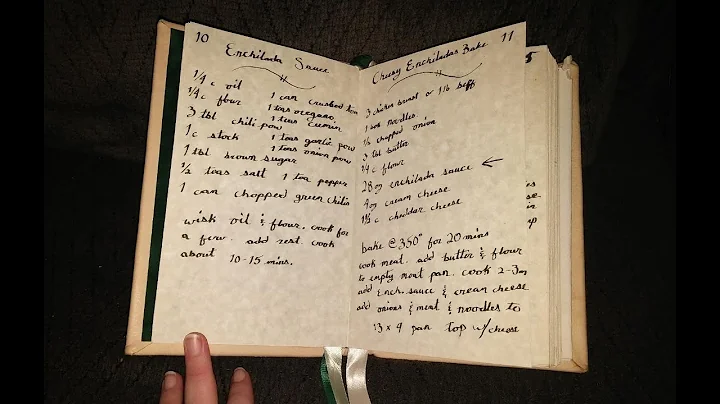 10
Enchilada Sauce
1/4 c oil 1 can crushed tom
1/4 c flour 1 teas oregano
3 tbl chili pow 1 teas cumin
1 c stock 1 teas garlic pow
1 tbl brown sugar 1 teas onion pow
1/2 teas salt 1 tea pepper
1 can chopped green chilis
wisk oil & flour. cook for
a few. add rest. cook
about 10-15 mins.
11
Cheesy Enchiladas Bake
3 chicken breast or 1 lb beff
noodles
1/2 chopped onion
3 tbl butter
1/4 c flour
28 oz enchilada sauce ←
4 oz cream cheese
1 1/2 c cheddar cheese
bake @ 350° for 20 mins
cook meat. add butter & flour
to empty meat pan. cook 2-3m
add Ench. sauce & cream cheese
add onions & meat & noodles to
13 x 9 pan top w/cheese